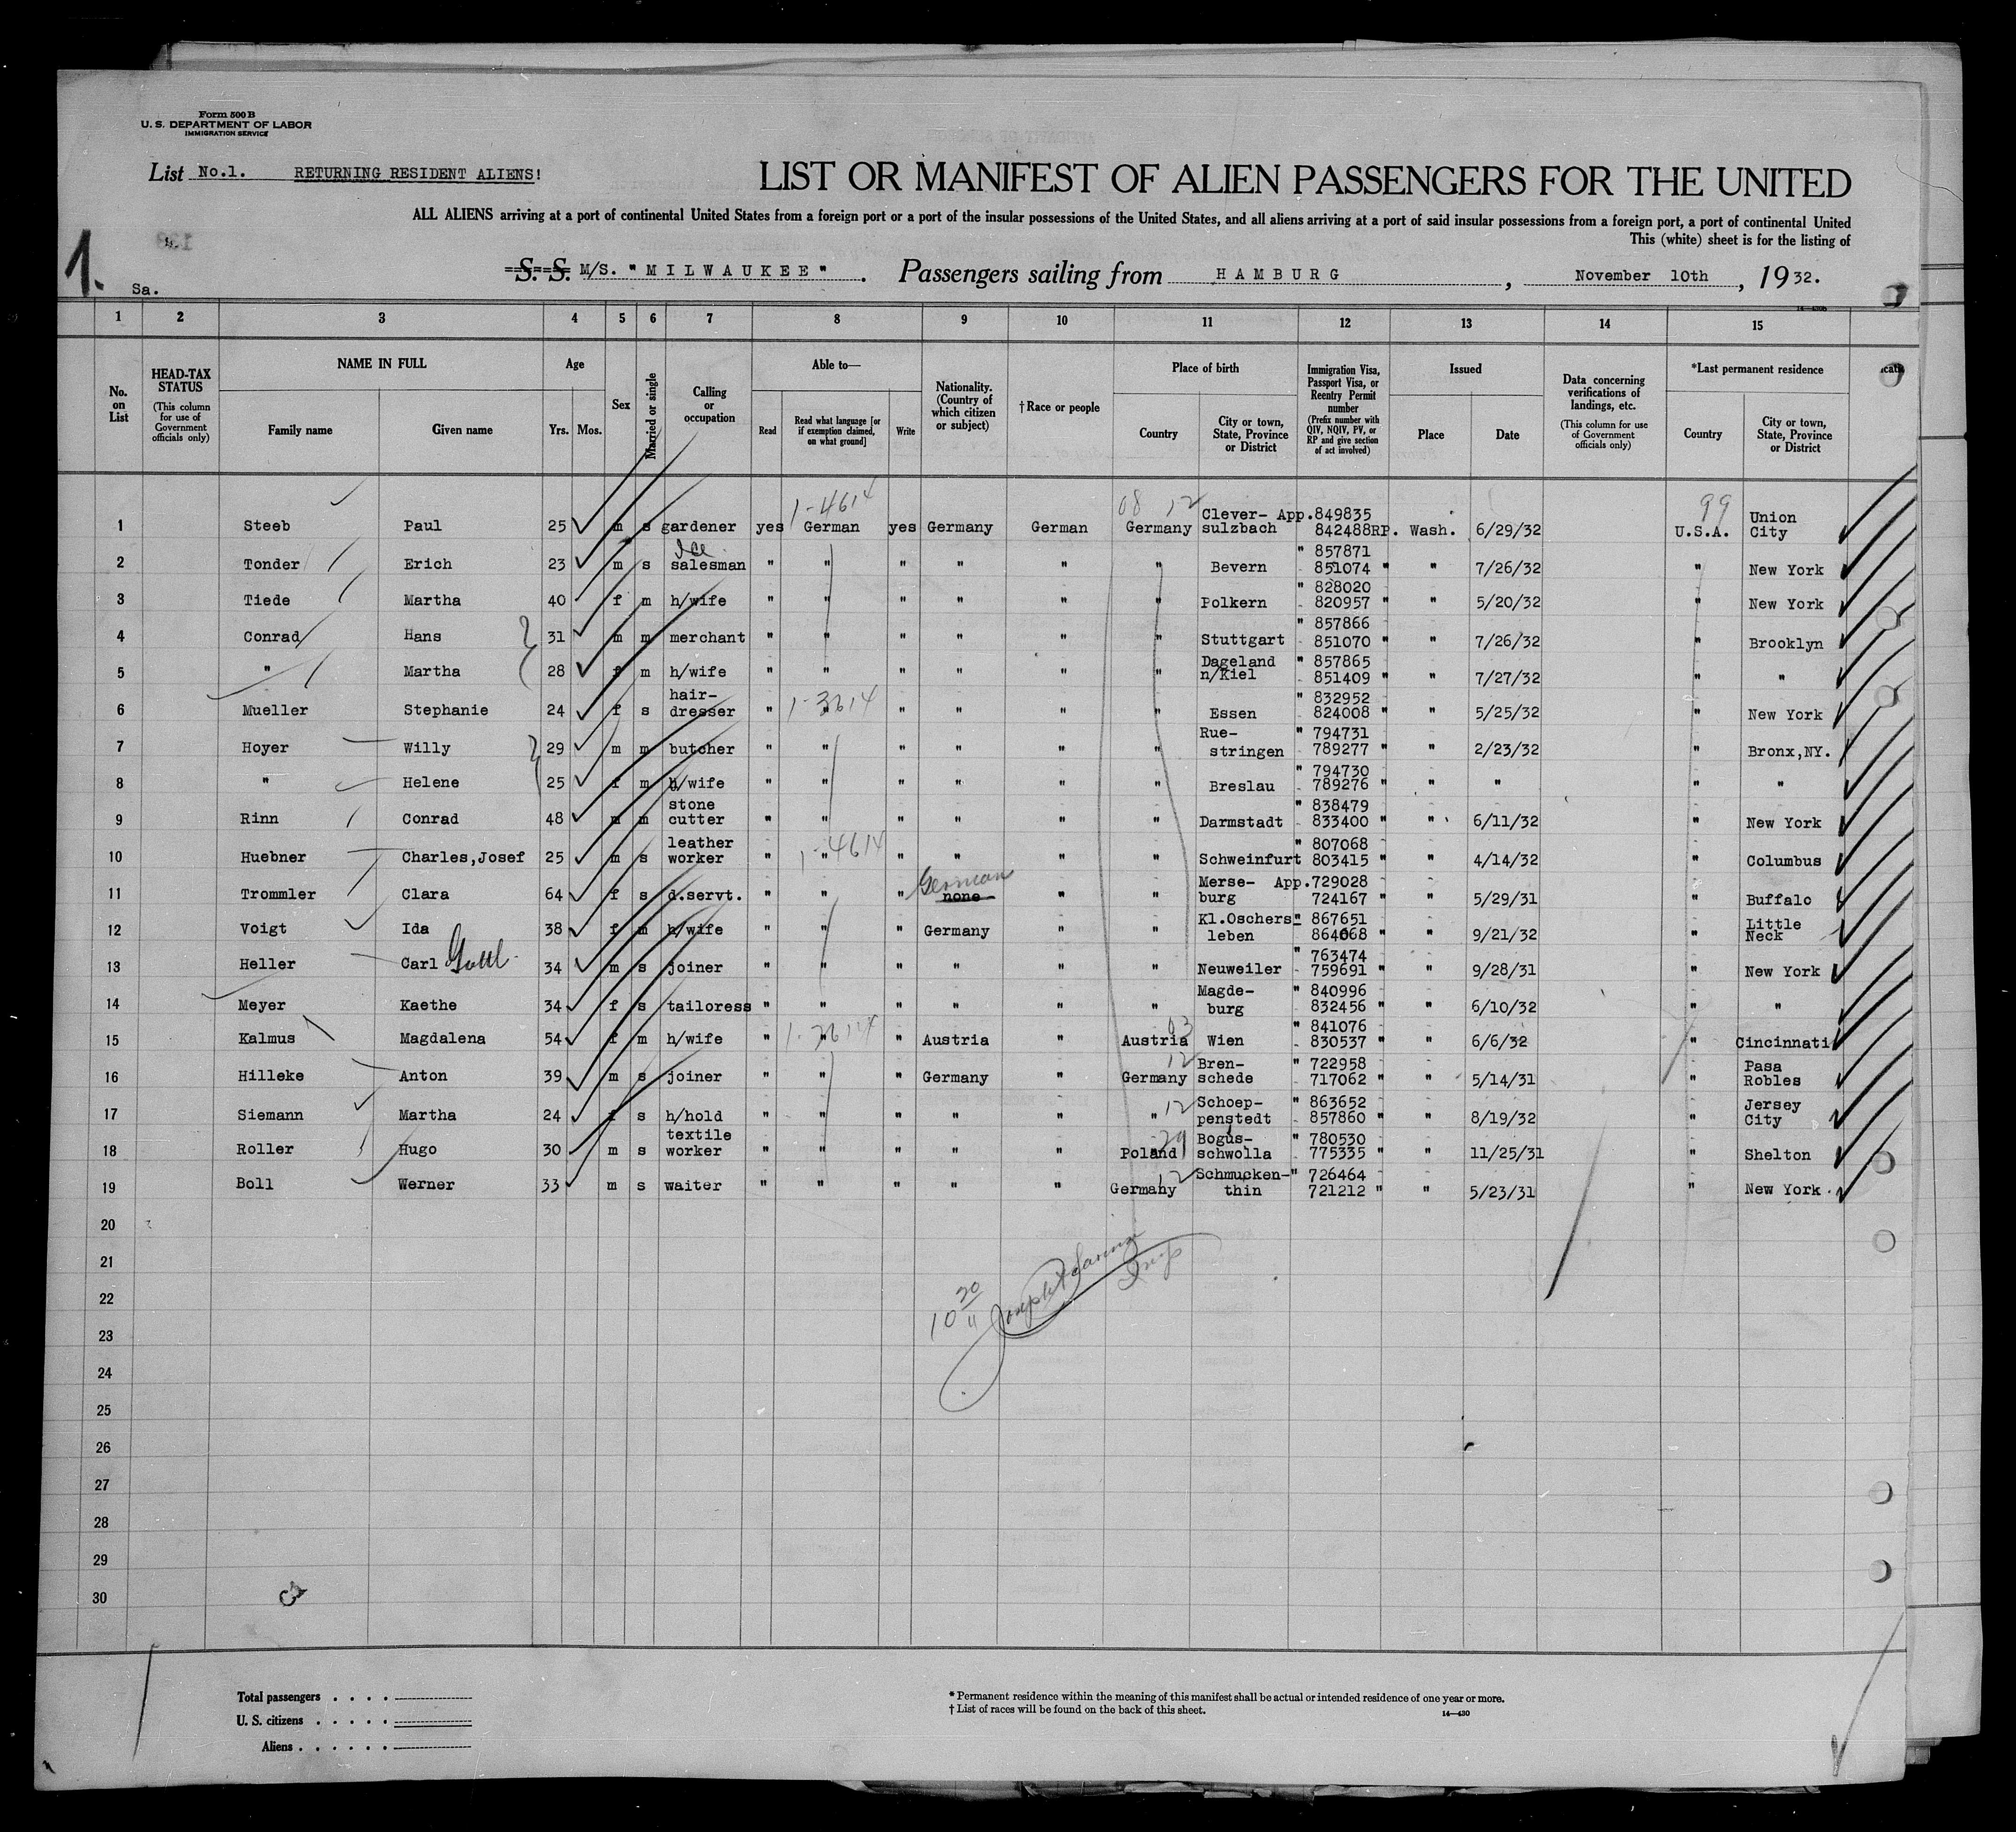 Form 500 B
U. S. DEPARTMENT OF LABOR
IMMIGRATION SERVICE
List No.1. RETURNING RESIDENT ALIENS!
LIST OR MANIFEST OF ALIEN PASSENGERS FOR THE UNITED
ALL ALIENS arriving at a port of continental United States from a foreign port or a port of the insular possessions of the United States, and all aliens arriving at a port of said insular possessions from a foreign port, a port of continental United
This (white) sheet is for the listing of
1.
Sa.
S. S. M/S. "MILWAUKEE". Passengers sailing from HAMBURG, November 10th, 1932.
1 2 3 4 5 6 7 8 9 10 11 12 13 14 15
No. on List
HEAD-TAX STATUS (This column for use of Government officials only)
NAME IN FULL
Family name Given name
Age
Yrs. Mos.
Sex
Married or single
Calling or occupation
Able to—
Read
Read what language [or if exemption claimed, on what ground]
Write
Nationality. (Country of which citizen or subject)
†Race or people
Place of birth
Country
City or town, State, Province or District
Immigration Visa, Passport Visa, or Reentry Permit number (Prefix number with QIV, NQIV, PV, or RP and give section of act involved)
Issued
Place Date
Data concerning verifications of landings, etc. (This column for use of Government officials only)
*Last permanent residence
Country
City or town, State, Province or District
1-4614 08 12 99
1 Steeb Paul 25 m s gardener yes German yes Germany German Germany Clever-sulzbach App.849835 842488RP. Wash. 6/29/32 U.S.A. Union City
Ice
2 Tonder Erich 23 m s salesman " " " " " " Bevern " 857871 851074 " " 7/26/32 " New York
3 Tiede Martha 40 f m h/wife " " " " " " Polkern " 828020 820957 " " 5/20/32 " New York
4 Conrad Hans 31 m m merchant " " " " " " Stuttgart " 857866 851070 " " 7/26/32 " Brooklyn
5 " Martha 28 f m h/wife " " " " " " Dageland n/Kiel " 857865 851409 " " 7/27/32 " "
1-3614
6 Mueller Stephanie 24 f s hair-dresser " " " " " " Essen " 832952 824008 " " 5/25/32 " New York
7 Hoyer Willy 29 m m butcher " " " " " " Rue-stringen " 794731 789277 " " 2/23/32 " Bronx,NY.
8 " Helene 25 f m h/wife " " " " " " Breslau " 794730 789276 " " " " "
9 Rinn Conrad 48 m m stone cutter " " " " " " Darmstadt " 838479 833400 " " 6/11/32 " New York
1-4614
10 Huebner Charles,Josef 25 m s leather worker " " " " " " Schweinfurt " 807068 803415 " " 4/14/32 " Columbus
German
11 Trommler Clara 64 f s d.servt. " " " none " " Merse-burg App.729028 724167 " 5/29/31 " Buffalo
12 Voigt Ida 38 f m h/wife " " " Germany " " Kl.Oschers-leben " 867651 864068 " " 9/21/32 " Little Neck
13 Heller Carl Gottl. 34 m s joiner " " " " " " Neuweiler " 763474 759691 " " 9/28/31 " New York
14 Meyer Kaethe 34 f s tailoress " " " " " " Magde-burg " 840996 832456 " " 6/10/32 " "
1-3614 03
15 Kalmus Magdalena 54 f m h/wife " " " Austria " Austria Wien " 841076 830537 " " 6/6/32 " Cincinnati
12
16 Hilleke Anton 39 m s joiner " " " Germany " Germany Bren-schede " 722958 717062 " " 5/14/31 " Pasa Robles
12
17 Siemann Martha 24 f s h/hold " " " " " " Schoep-penstedt " 863652 857860 " " 8/19/32 " Jersey City
29
18 Roller Hugo 30 m s textile worker " " " " " Poland Bogus-schwolla " 780530 775335 " " 11/25/31 " Shelton
12
19 Boll Werner 33 m s waiter " " " " " Germany Schmucken-thin " 726464 721212 " " 5/23/31 " New York
20
21
22
23
24
25
26
27
28
29
30
10 20/11
Joseph
Insp
Total passengers
U. S. citizens
Aliens
* Permanent residence within the meaning of this manifest shall be actual or intended residence of one year or more.
† List of races will be found on the back of this sheet.
14—430